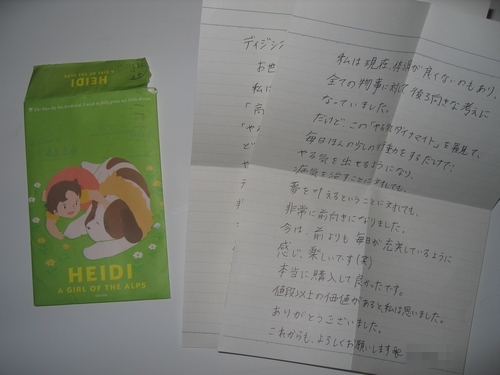 HEIDI
A GIRL OF THE ALPS
HEIDI
A GIRL OF THE ALPS
ディジシ
お世
私に
「高
私は現在、体調が良くないのもあり、
全ての物事に対して後ろ向きな考えに
なっていました。
だけど、この「やる気ダイナマイト」を発見て、
毎日ほんの少しの行動をするだけで、
やる気を出せるようになり、
病気を治すことに対しても、
夢を叶えるということに対しても、
非常に前向きになりました。
今は、前よりも毎日が充実しているように
感じ、楽しいです(笑)
本当に購入して良かったです。
値段以上の価値があると私は思いました。
ありがとうございました。
これからも、よろしくお願いします